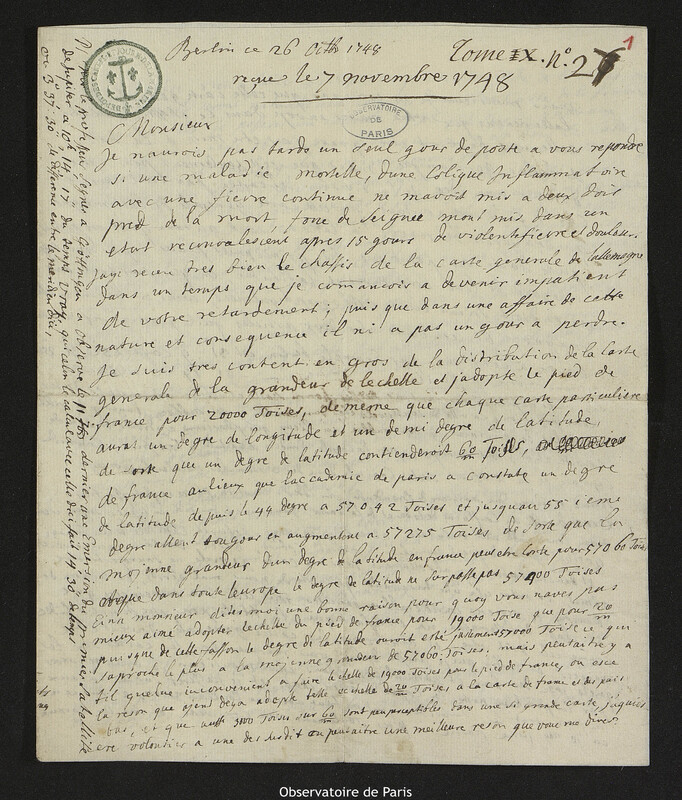 Berlin ce 26 Octb 1748
Tome IX. n.º 2
1
reçue le 7 novembre 1748
OBSERVATOIRE DE PARIS
Monsieur
Je naurois pas tardé un seul gour de poste a vous repondre
si une maladie mortelle, dune Colique Inflammatoire
avec une fievre continue ne mavoit mis a deux dois
pred de la mort, force de seignee mont mis dans un
etat reconvalescent apres 15 gours de violente fievre et douleur.
jay receu tres bien le chassis de la carte generale de lallemagne
dans un temps que je comancois a devenir impatient
de votre retardement; puis que dans une affaire de cette
nature et consequence il ni a pas un gour a perdre.
Je suis tres content en gros de la distribution de la Carte
generale de la grandeur de lechelle et jadopte le pied de
france pour 20000 Toises, de meme que chaque carte particuliere
aura un degre de longitude et un demi degre de latitude,
de sorte que un degre de latitude contienderoit 60/m Toises,
de france aulieux que laccademie de paris a constaté un degre
de latitude depuis le 49 degre a 57042 Toises et jusquau 55 ieme
degre allent tougours en augmentent a 57275 Toises de sorte que la
mojenne grandeur dun degre de latitude en france peut etre Conté pour 57060 Toises
dans toute leurope le degre de latitude ne surpasse pas 57400 Toises
Einsi monsieur dites moi une bonne raison pour quoy vous naves pas
mieux aimé adopter lechelle du pied de france pour 19000 Toise que pour 20/m
puis que de cette fasson le degre de latitude auroit eté justement 57000 Toise ce qui
saproche le plus a la mojenne grandeur de 57060 Toises. mais peutaitre y a
til quelque inconvenient a faire lechelle de 19000 Toises pour le pied de france, ou esce
la reson que ajent deja adopté telle echelle de 20/m Toises a la carte de france et des pais
bas, et que aussi 3000 Toises sur 60/m sont peu perceptibles dans une si grande carte, jaquies
cere volontier a une des susdit ou peutaitre une meilleure reson que vous me dires.
le professeur Segner a Göttingen a observé le 11 7bre dernier une Emersion du premier Satellite
de Jupiter a 10h 14' 17" du temps vray, qui selon le calcul avec celle dici fait 14' 30" de temps
ou 3° 37' 30" de difference entre le meridien dici,
Observatoire de Paris